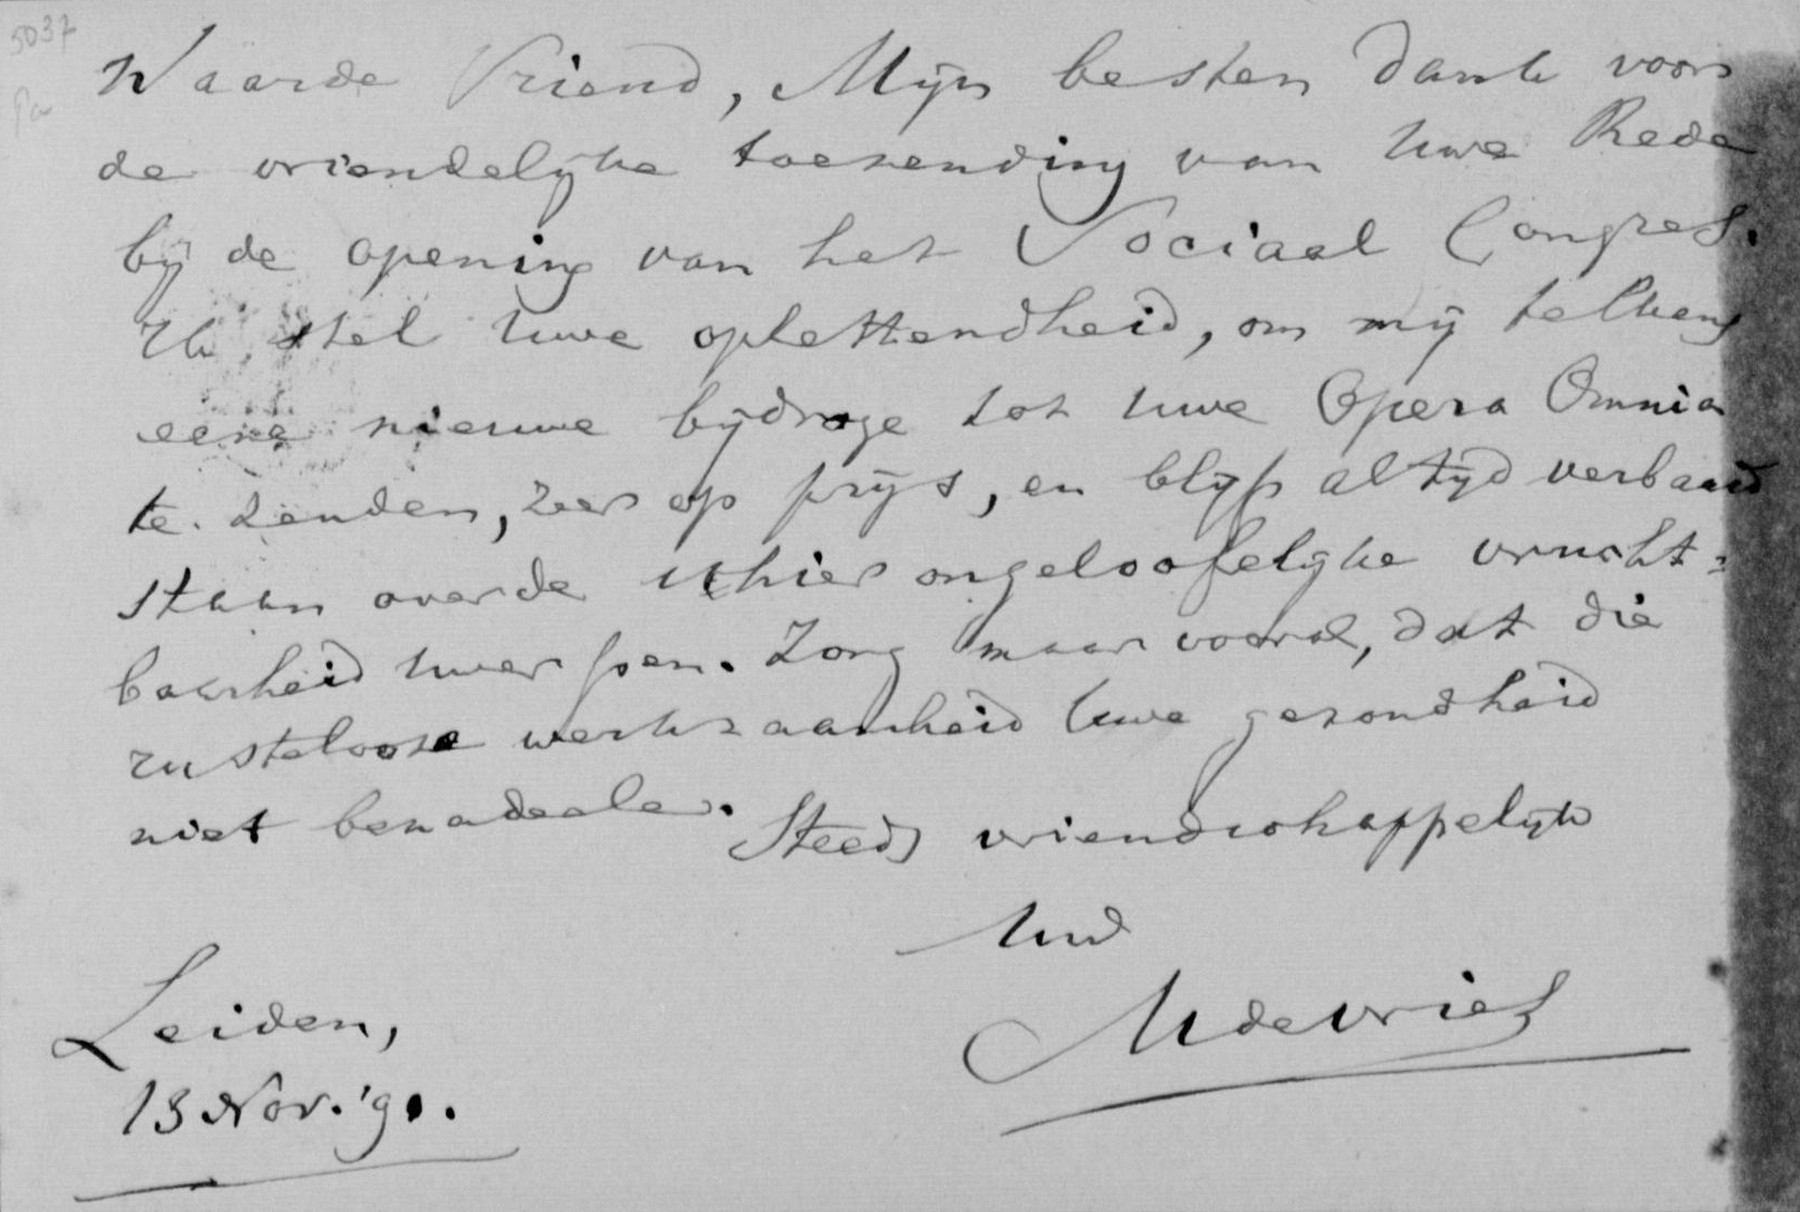 5037
Waarde Vriend, Mijn besten dank voor
de vriendelijke toezending van Uwe Rede
bij de opening van het Sociaal Congres.
Ik stel Uwe oplettendheid, om mij telkens
eene nieuwe bijdrage tot Uwe Opera Omnia
te zenden, zeer op prijs, en blijf altijd verbaasd
staan over de schier ongeloofelijke vrucht=
baarheid Uwer pen. Zorg maar vooral, dat die
rustelooze werkzaamheid Uwe gezondheid
niet benadeele. Steeds vriendschappelijk
Uw
M de Vries
Leiden,
13 Nov. '91.